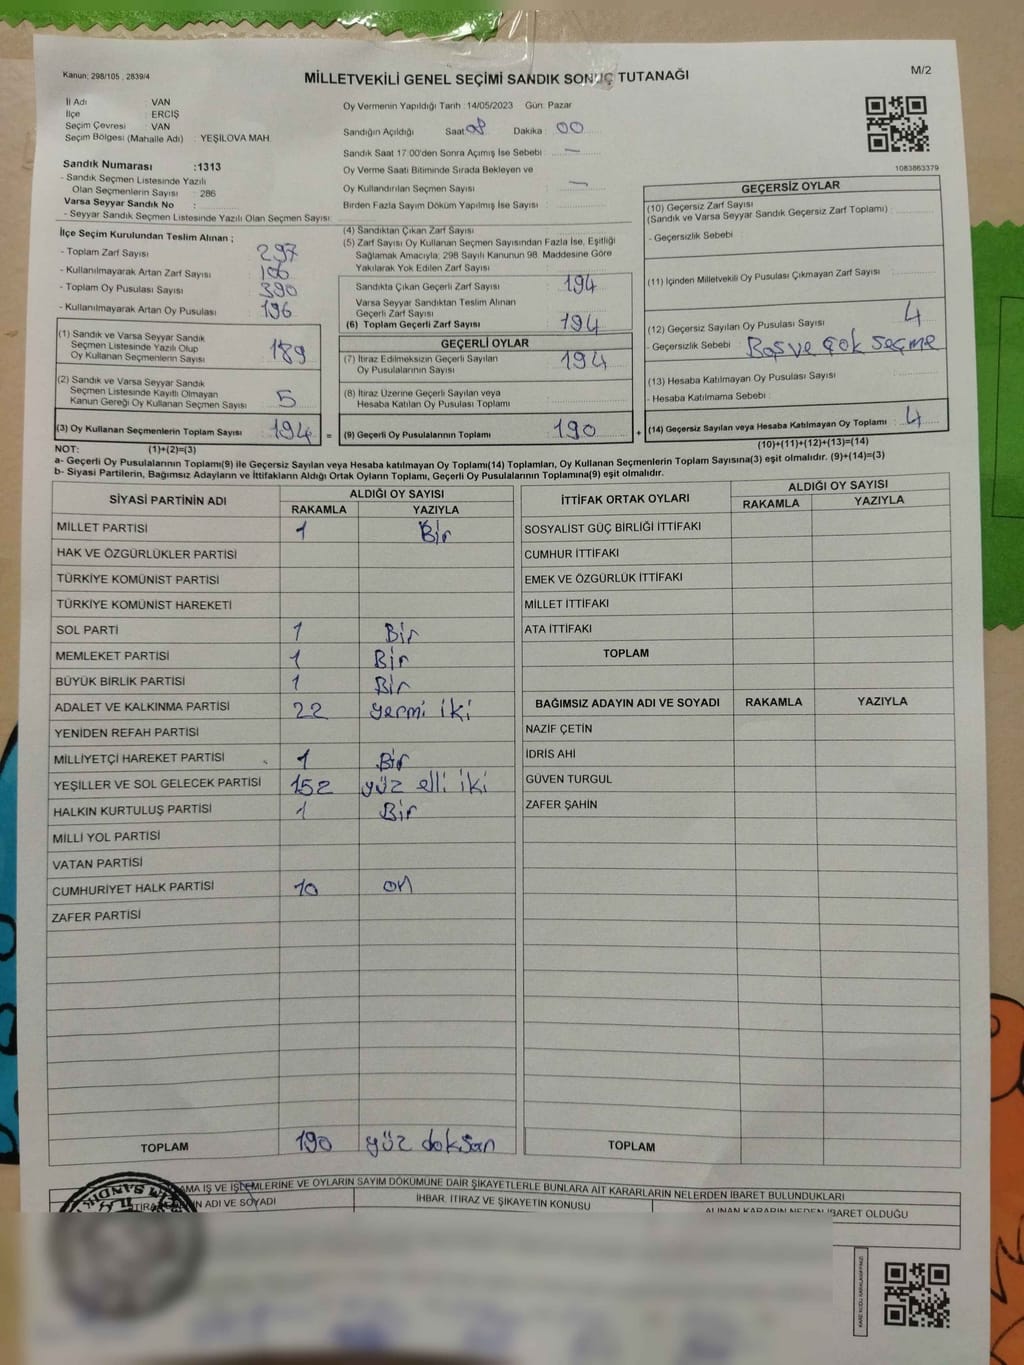 Kanun; 298/105 , 2839/4
MİLLETVEKİLİ GENEL SEÇİMİ SANDIK SONUÇ TUTANAĞI
M/2
İl Adı : VAN
İlçe : ERCİŞ
Seçim Çevresi : VAN
Seçim Bölgesi (Mahalle Adı) : YEŞİLOVA MAH.
Oy Vermenin Yapıldığı Tarih :14/05/2023 Gün: Pazar
Sandığın Açıldığı Saat: 08 Dakika : 00
Sandık Saat 17.00'den Sonra Açımış İse Sebebi : —
Oy Verme Saati Bitiminde Sırada Bekleyen ve
Oy Kullandırılan Seçmen Sayısı : —
Birden Fazla Sayım Döküm Yapılmış İse Sayısı :
1083863379
Sandık Numarası :1313
- Sandık Seçmen Listesinde Yazılı
Olan Seçmenlerin Sayısı : 286
Varsa Seyyar Sandık No :
- Seyyar Sandık Seçmen Listesinde Yazılı Olan Seçmen Sayısı:
İlçe Seçim Kurulundan Teslim Alınan ;
- Toplam Zarf Sayısı 297
- Kullanılmayarak Artan Zarf Sayısı :
- Toplam Oy Pusulası Sayısı : 390
- Kullanılmayarak Artan Oy Pusulası : 196
(1) Sandık ve Varsa Seyyar Sandık
Seçmen Listesinde Yazılı Olup
Oy Kullanan Seçmenlerin Sayısı : 189
(2) Sandık ve Varsa Seyyar Sandık
Seçmen Listesinde Kayıtlı Olmayan
Kanun Gereği Oy Kullanan Seçmen Sayısı : 5
(3) Oy Kullanan Seçmenlerin Toplam Sayısı : 194 =
(4) Sandıktan Çıkan Zarf Sayısı :
(5) Zarf Sayısı Oy Kullanan Seçmen Sayısından Fazla İse, Eşitliği
Sağlamak Amacıyla; 298 Sayılı Kanunun 98. Maddesine Göre
Yakılarak Yok Edilen Zarf Sayısı :
Sandıkta Çıkan Geçerli Zarf Sayısı : 194
Varsa Seyyar Sandıktan Teslim Alınan
Geçerli Zarf Sayısı :
(6) Toplam Geçerli Zarf Sayısı : 194
GEÇERLİ OYLAR
(7) İtiraz Edilmeksizin Geçerli Sayılan
Oy Pusulalarının Sayısı : 194
(8) İtiraz Üzerine Geçerli Sayılan veya
Hesaba Katılan Oy Pusulası Toplamı :
(9) Geçerli Oy Pusulalarının Toplamı : 190 +
GEÇERSİZ OYLAR
(10) Geçersiz Zarf Sayısı
(Sandık ve Varsa Seyyar Sandık Geçersiz Zarf Toplamı) :
- Geçersizlik Sebebi :
(11) İçinden Milletvekili Oy Pusulası Çıkmayan Zarf Sayısı :
(12) Geçersiz Sayılan Oy Pusulası Sayısı : 4
- Geçersizlik Sebebi : Boş ve Çok seçme
(13) Hesaba Katılmayan Oy Pusulası Sayısı :
- Hesaba Katılmama Sebebi :
(14) Geçersiz Sayılan veya Hesaba Katılmayan Oy Toplamı : 4
NOT: (1)+(2)=(3)
(10)+(11)+(12)+(13)=(14)
a- Geçerli Oy Pusulalarının Toplamı(9) ile Geçersiz Sayılan veya Hesaba katılmayan Oy Toplamı(14) Toplamları, Oy Kullanan Seçmenlerin Toplam Sayısına(3) eşit olmalıdır. (9)+(14)=(3)
b- Siyasi Partilerin, Bağımsız Adayların ve İttifakların Aldığı Ortak Oyların Toplamı, Geçerli Oy Pusulalarının Toplamına(9) eşit olmalıdır.
SİYASİ PARTİNİN ADI ALDIĞI OY SAYISI
RAKAMLA YAZIYLA
MİLLET PARTİSİ 1 Bir
HAK VE ÖZGÜRLÜKLER PARTİSİ
TÜRKİYE KOMÜNİST PARTİSİ
TÜRKİYE KOMÜNİST HAREKETİ
SOL PARTİ 1 Bir
MEMLEKET PARTİSİ 1 Bir
BÜYÜK BİRLİK PARTİSİ 1 Bir
ADALET VE KALKINMA PARTİSİ 22 yermi iki
YENİDEN REFAH PARTİSİ
MİLLİYETÇİ HAREKET PARTİSİ 1 Bir
YEŞİLLER VE SOL GELECEK PARTİSİ 152 yüz elli iki
HALKIN KURTULUŞ PARTİSİ 1 Bir
MİLLİ YOL PARTİSİ
VATAN PARTİSİ
CUMHURİYET HALK PARTİSİ 10 on
ZAFER PARTİSİ
TOPLAM 190 yüz doksan
İTTİFAK ORTAK OYLARI ALDIĞI OY SAYISI
RAKAMLA YAZIYLA
SOSYALİST GÜÇ BİRLİĞİ İTTİFAKI
CUMHUR İTTİFAKI
EMEK VE ÖZGÜRLÜK İTTİFAKI
MİLLET İTTİFAKI
ATA İTTİFAKI
TOPLAM
BAĞIMSIZ ADAYIN ADI VE SOYADI RAKAMLA YAZIYLA
NAZİF ÇETİN
İDRİS AHİ
GÜVEN TURGUL
ZAFER ŞAHİN
TOPLAM
AMA İŞ VE İŞLEMLERİNE VE OYLARIN SAYIM DÖKÜMÜNE DAİR ŞİKAYETLERLE BUNLARA AİT KARARLARIN NELERDEN İBARET BULUNDUKLARI
ADI VE SOYADI
İHBAR, İTİRAZ VE ŞİKAYETİN KONUSU
ALINAN KARARIN NEDEN İBARET OLDUĞU